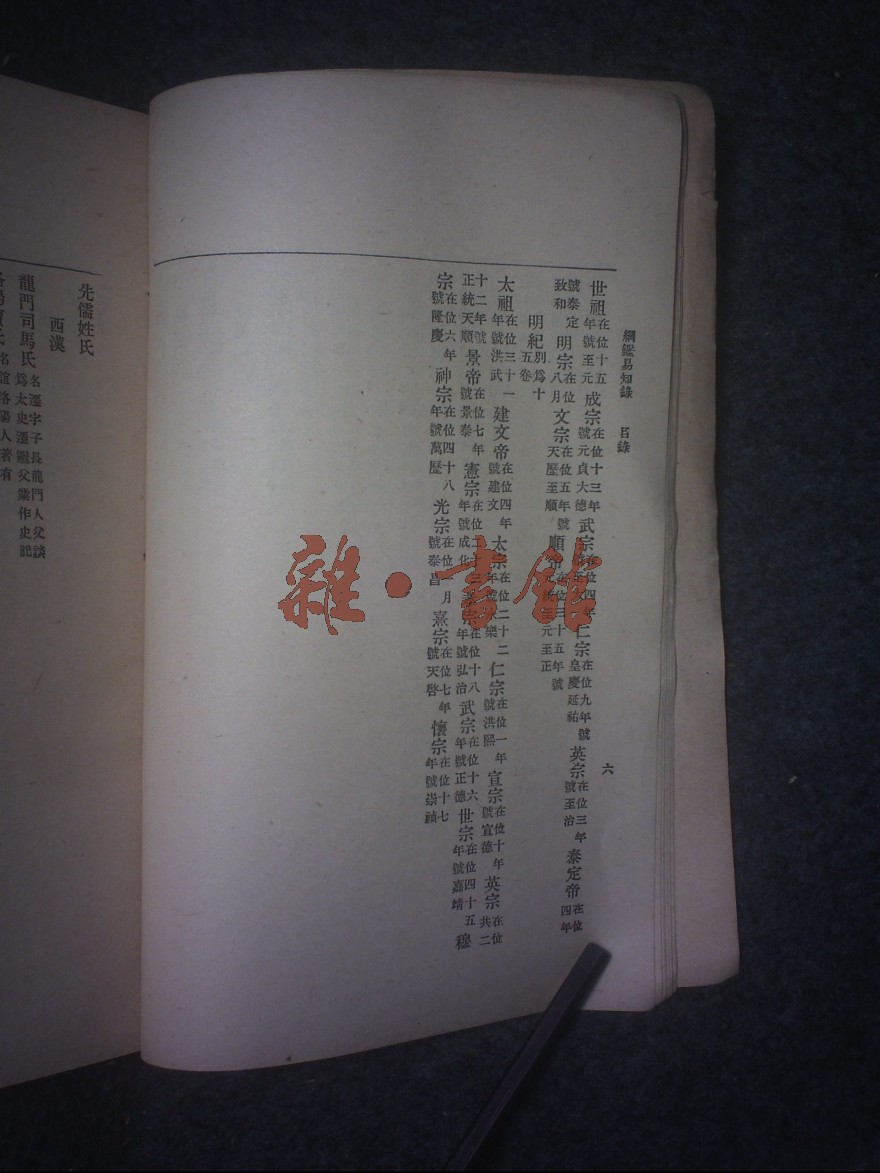 綱鑑易知錄　目錄　六
世祖在位十五年號至元　成宗在位十三年號元貞大德　武宗在位四年　仁宗在位九年號皇慶延祐　英宗在位三年號至治　泰定帝在位四年
號泰定致和　明宗在位八月　文宗在位五年號天歷至順　順帝在位三十五年號元至正
明紀別為十五卷
太祖在位三十一年號洪武　建文帝在位四年號建文　太宗在位二十二年號樂　仁宗在位一年號洪熙　宣宗在位十年號宣德　英宗在位共二
十二年號正統天順　景帝在位七年號景泰　憲宗在位二十三年號成化　孝宗在位十八年號弘治　武宗在位十六年號正德　世宗在位四十五年號嘉靖　穆
宗在位六年號隆慶　神宗在位四十八年號萬歷　光宗在位一月號泰昌　熹宗在位七年號天啓　懷宗在位十七年號崇禎
先儒姓氏
西漢
龍門司馬氏名遷字子長龍門人父談為太史遷繼父業作史記
名誼洛陽人著有
雜·書館